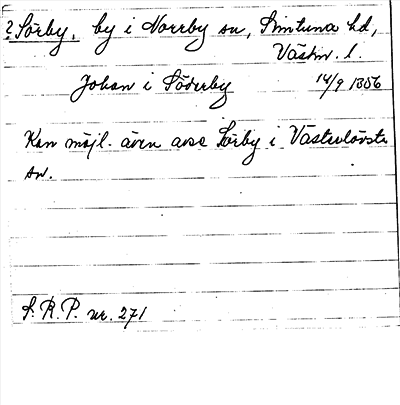 ? Sörby, by i Norrby sn, Simtuna hd,
Västm. l.
Johan i Söderby 14/9 1356
Kan möjl. även avse Sörby i Västerlövsta
sn.
S.R.P. nr. 271